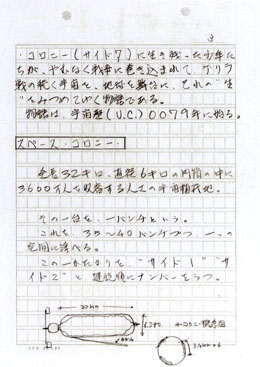 3
コロニー(サイド7)に生き残った少年た
ちが、やむなく戦争に巻き込まれて、ゲリラ
戦の続く宇宙を、地球を舞台に、それの“生”
をみつめてゆく物語である。
物語は、宇宙歴(U.C.)0079年に始る。
スペース・コロニー
全長32キロ、直径6キロの円筒の中に
3600万人を収容する人工の宇宙植民地。
その一台を、一バンチという。
これを、35〜40バンチづつ、一つの
空間に浮べる。
この一かたまりを、“サイド1”“サ
イド2”と建設順にナンバーをうつ。
32km
6.4km
←コロニー概念図